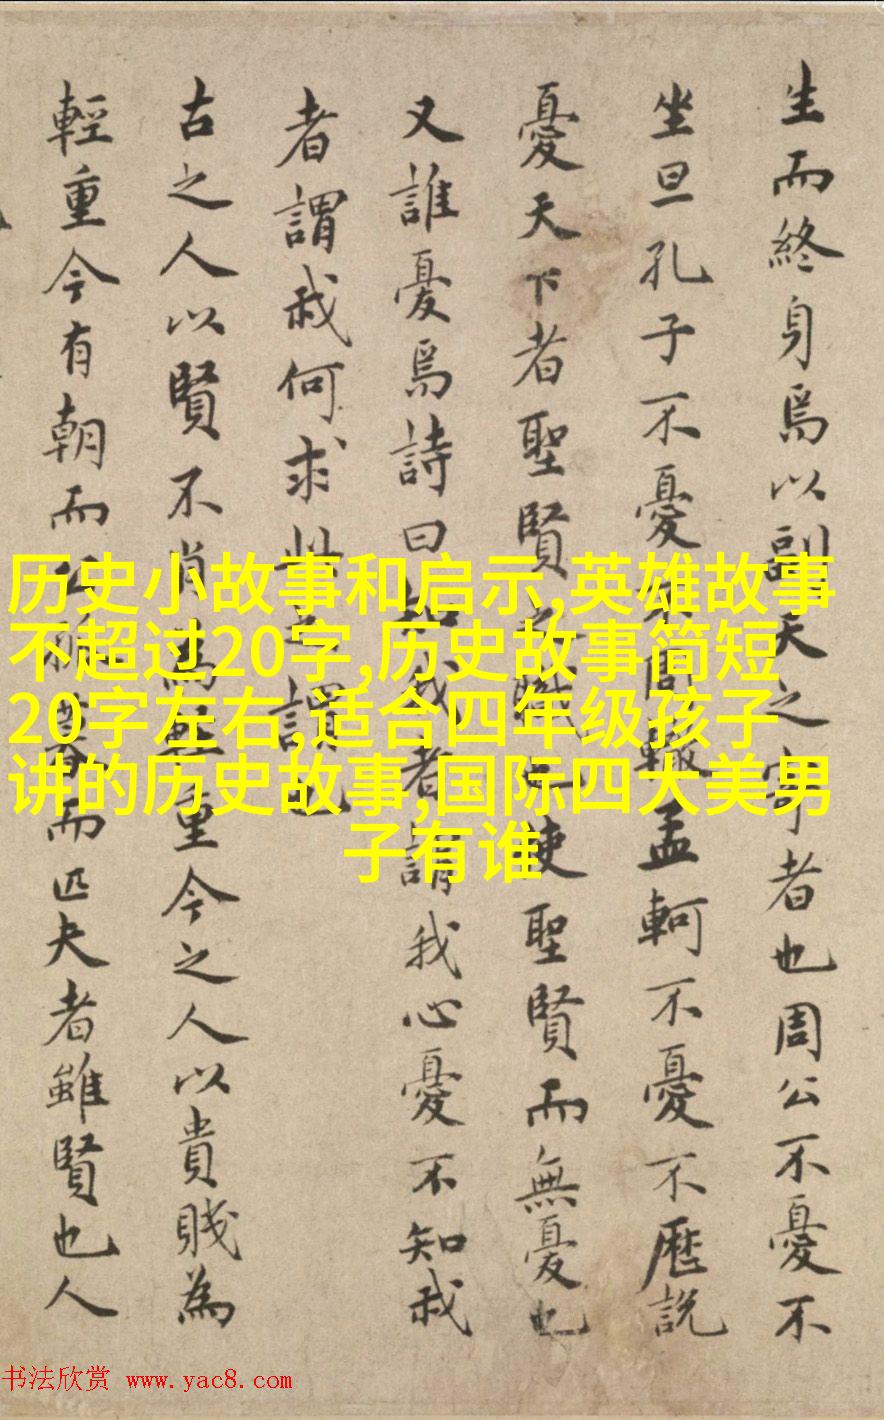 生而終身焉以副天之寄者也周公不憂不
坐旦孔子不憂不周輙孟軻不憂不歷說
憂天下者聖賢之職使聖賢而無憂也
又誰憂焉詩曰知我者謂我心憂不知我
者謂我何求此之謂也
古之人以賢不肖為輕重今之人以貴賤為
輕重今有朝而公卿暮而匹夫者雖賢也人
历史小故事和启示,英雄故事
不超过20字,历史故事简短
20字左右,适合四年级孩子
讲的历史故事,国际四大美男
子有谁
书法欣赏 www.yac8.com